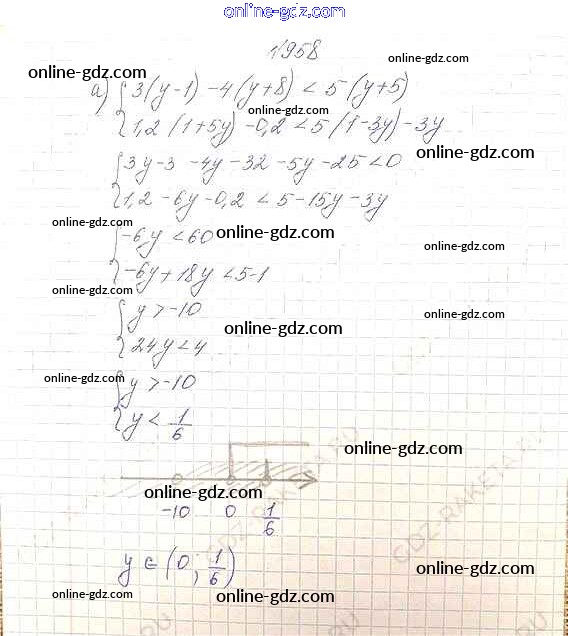 online-gdz.com
1958
online-gdz.com
online-gdz.com
а) { 3(y-1) -4(y+8) < 5(y+5)
1,2(1+5y) -0,2 < 5(1-3y) -3y
online-gdz.com
{ 3y-3 -4y -32 -5y -25 < 0
1,2 -6y -0,2 < 5 -15y -3y
online-gdz.com
online-gdz.com
{ -6y < 60
online-gdz.com
-6y +18y < 5-1
online-gdz.com
{ y > -10
online-gdz.com
24y < 4
online-gdz.com
online-gdz.com
{ y > -10
y < 1/6
online-gdz.com
online-gdz.com
-10 0 1/6
GDZ-RAKETA.RU
y ∈ (0; 1/6)
online-gdz.com
online-gdz.com
online-gdz.com